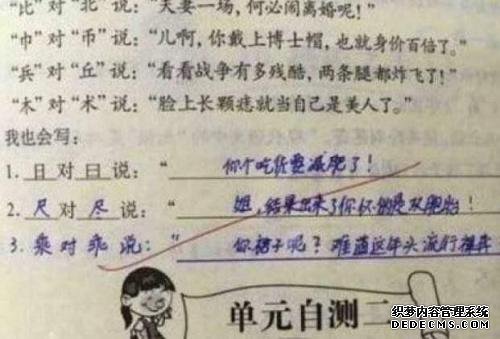 “比”对“北”说：“夫妻一场，何必闹离婚呢！”
“巾”对“币”说：“儿啊，你戴上博士帽，也就身价百倍了。”
“兵”对“丘”说：“看看战争有多残酷，两条腿都炸飞了！”
“木”对“术”说：“脸上长颗痣就当自己是美人了。”
我也会写：
1. 日对曰说：“你个吃货要减肥了！
2. 尺对尽说：“姐，结果出来了你怀的是双胞胎！
3. 乘对乖说：“你裤子呢？难道这年头流行裸奔
单元自测二
织梦内容管理系统
DEDECMS.COM